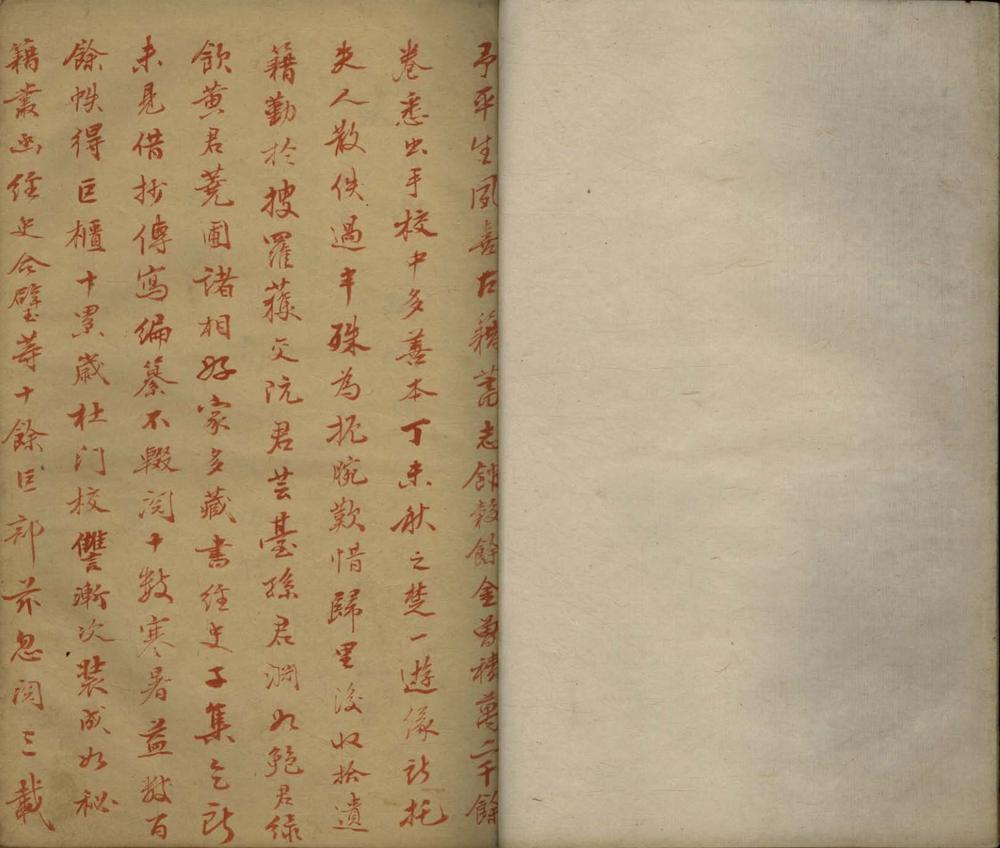 予平生夙喜古籍蓄志餅穀餘金曾裝萬二千餘
卷悉出手校中多善本丁未秋之楚一遊緣訪托
失人散佚過半殊為扼腕歎惜歸里後收拾遺
籍勤於搜羅蒐交阮君芸臺孫君淵如鮑君綠
飲黃君蕘圃諸相好家多藏書經史子集乞所
未見借抄傳寫編纂不輟閱十數寒暑益數百
餘帙得巨櫃十累歲杜門校讎漸次裝成如秘
籍叢函經史合璧等十餘巨部茲忽閱三載